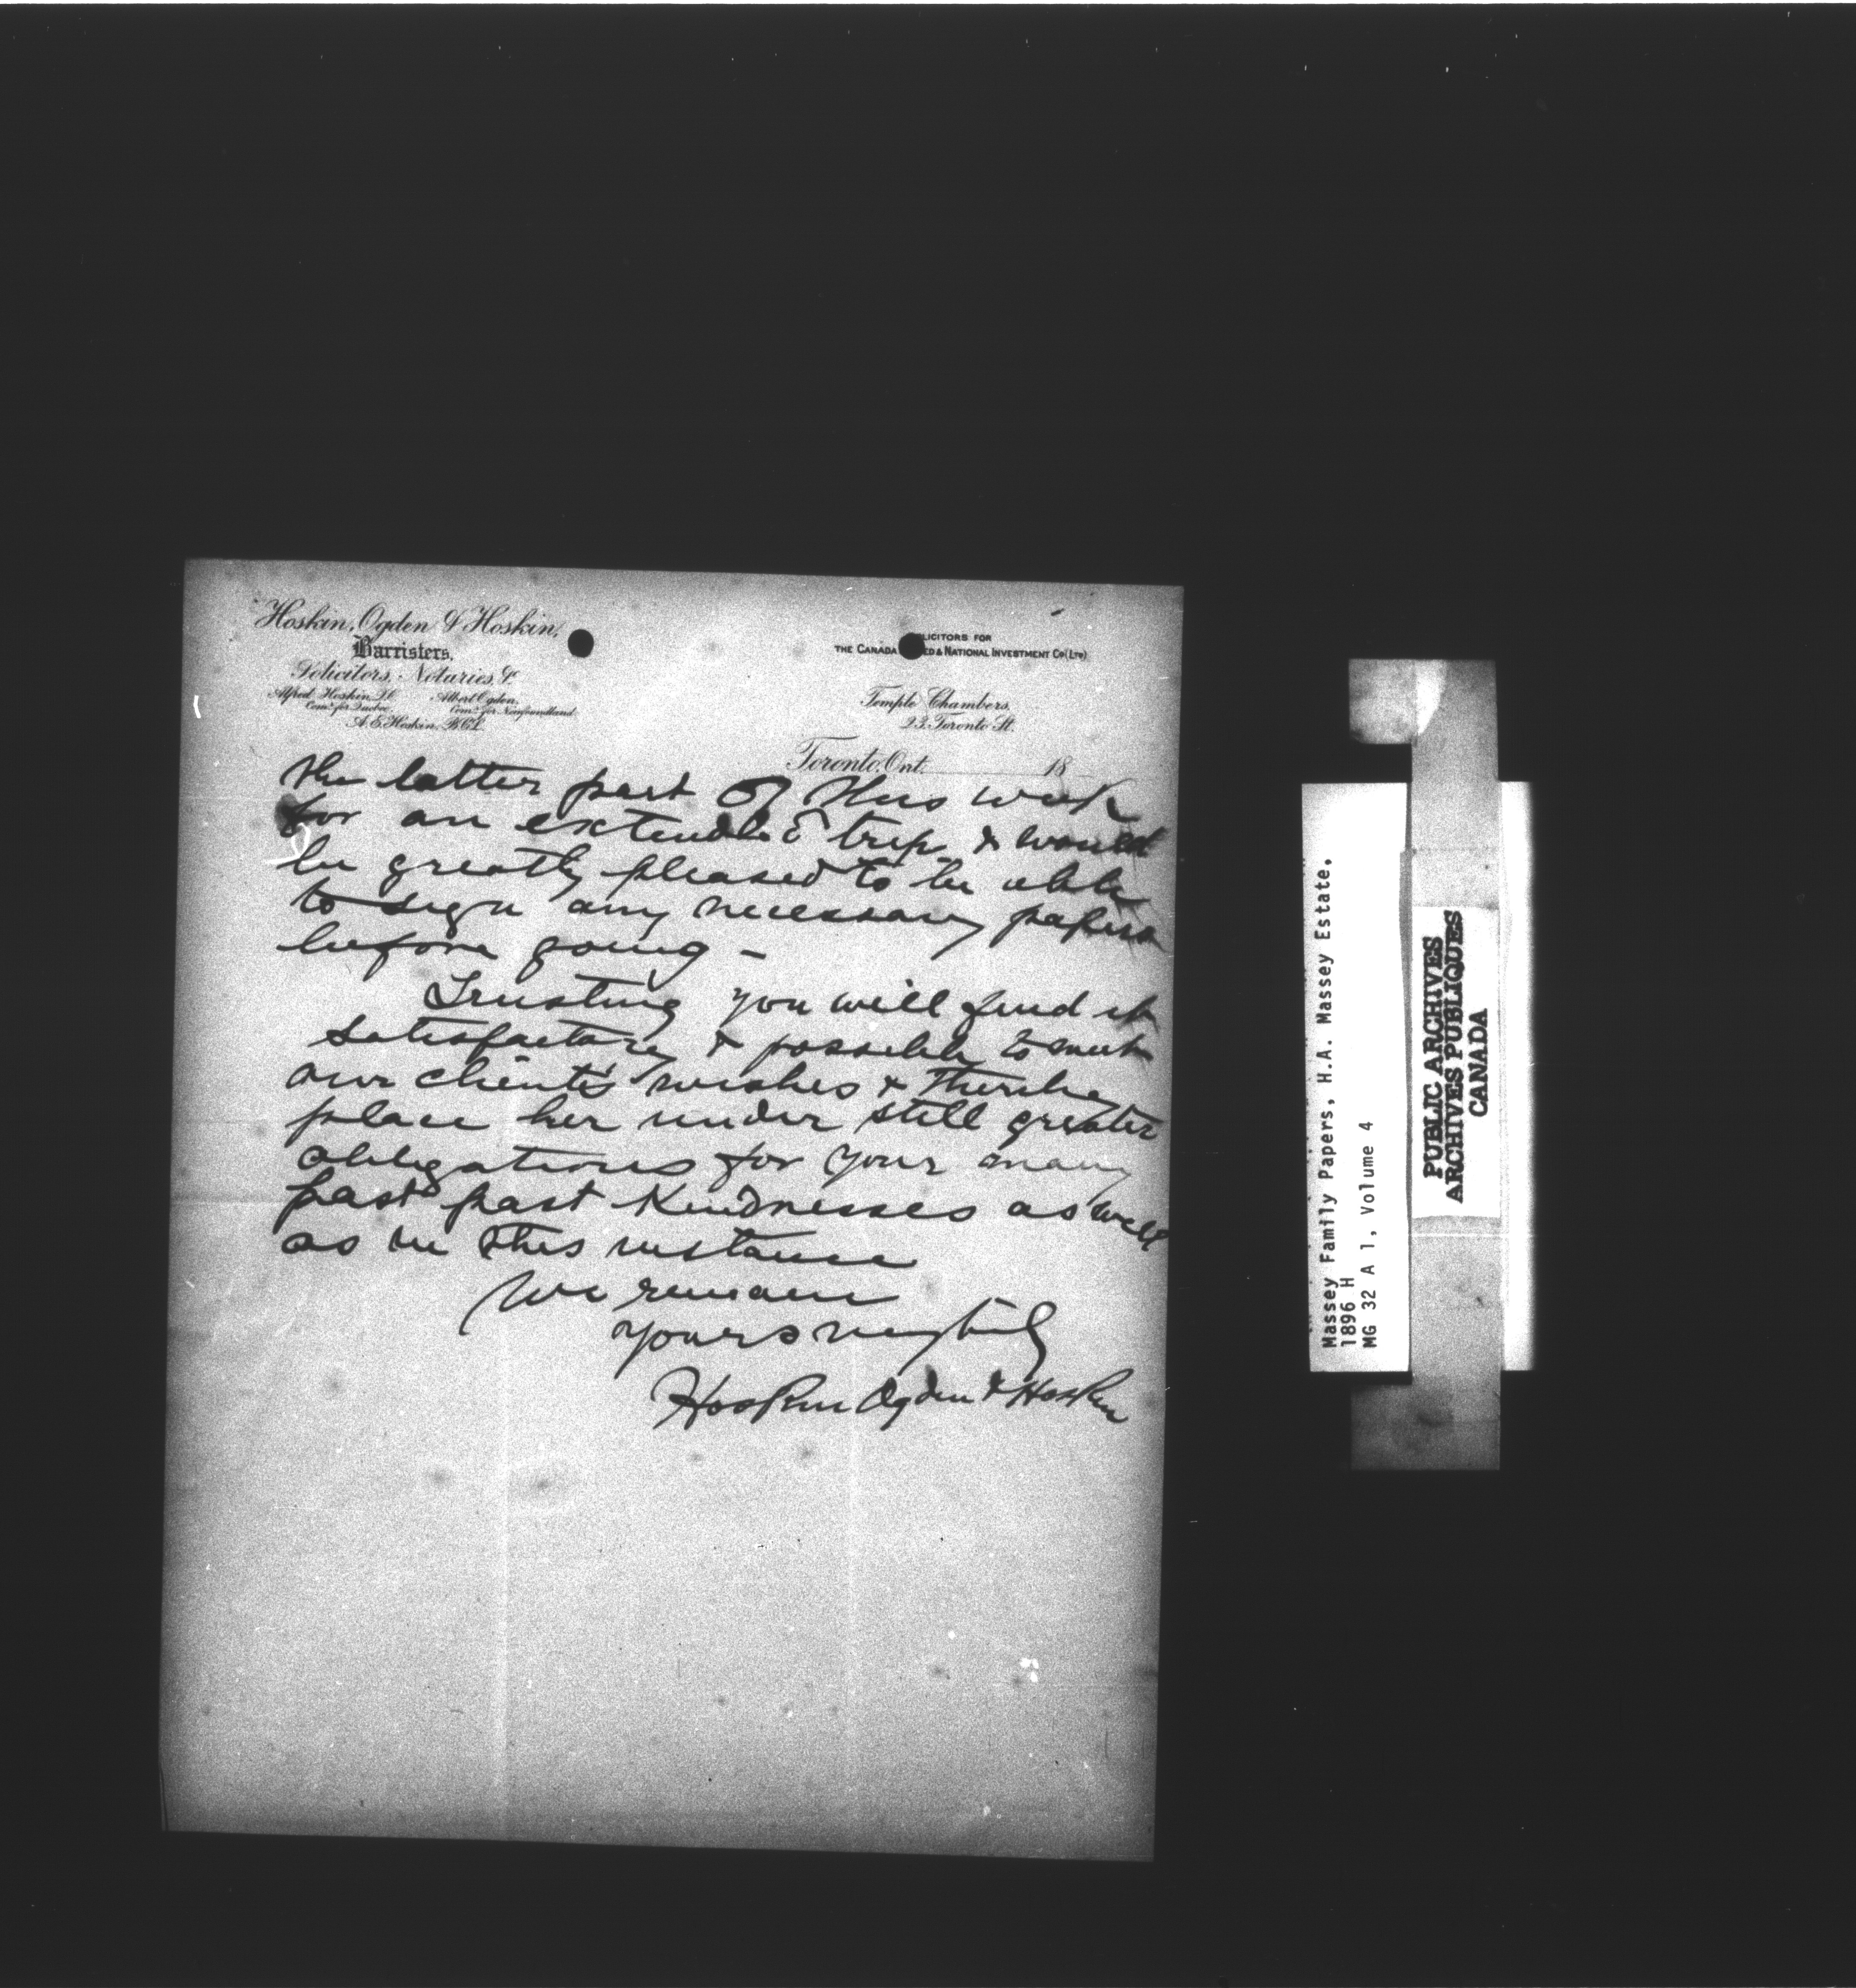 Hoskin, Ogden & Hoskin,
Barristers,
Solicitors, Notaries, &c
Alfred Hoskin, Q.C. Albert Ogden,
Comr. for Quebec. Comr. for Newfoundland.
A. E. Hoskin, B.C.L.
LICITORS FOR
THE CANADA ED & NATIONAL INVESTMENT CO (LTD)
Temple Chambers,
23. Toronto St.
Toronto, Ont. 18
the latter part of this week
for an extended trip & would
be greatly pleased to be able
to sign any necessary papers
before going -
Trusting you will find it
satisfactory & possible to meet
our client's wishes & thereby
place her under still greater
obligations for your many
past past kindnesses as well
as in this instance
We remain
yours
Hoskin Ogden & Hoskin
Massey Family Papers, H.A. Massey Estate,
1896 H
MG 32 A 1, Volume 4
PUBLIC ARCHIVES
ARCHIVES PUBLIQUES
CANADA